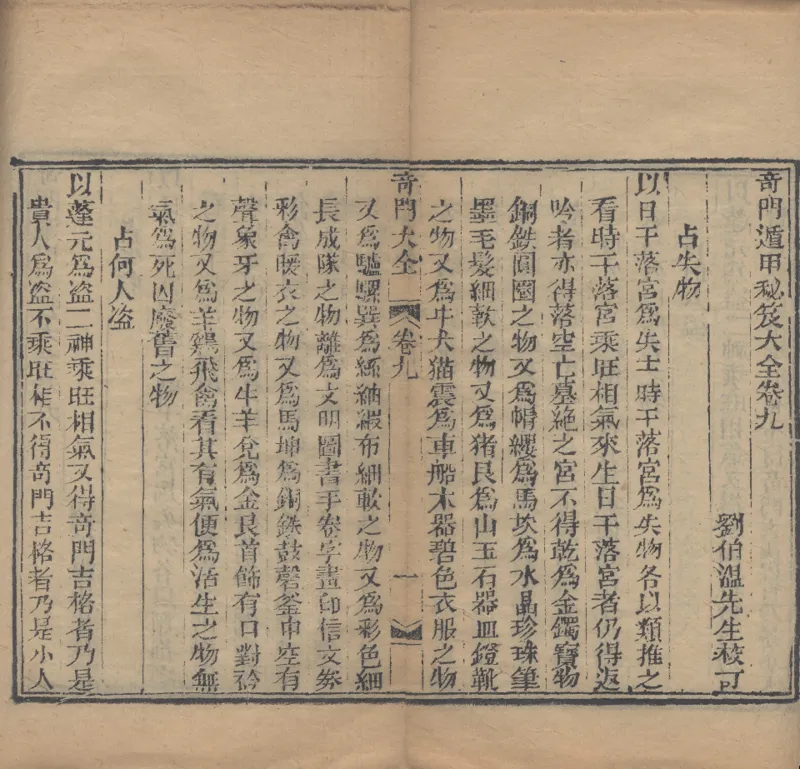 奇門遁甲秘笈大全卷九
劉伯溫先生秘可
占失物
以日干落宮為失主時干落宮為失物各以類推之
看時干落宮乘旺相氣來生日干落宮者仍得返
吟者亦得落空亡墓絕之宮不得乾為金鐲寶物
銅鉄圓圈之物又為帽纓為馬坎為水晶珍珠筆
墨毛髮細軟之物又為猪艮為山玉石器皿鐙靴
之物又為牛犬猫震為車船木器碧色衣服之物
奇門大全 卷九 一
又為驢騾巽為絲紬緞布細軟之物又為彩色細
長成隊之物離為文明圖書手卷字畫印信文劵
彩禽暖衣之物又為馬坤為銅鉄鼓磬釜中空有
聲象牙之物又為牛羊兌為金艮首飾有口對衿
之物又為羊鷄飛禽看其有氣便為活生之物無
氣為死囚廢舊之物
占何人盜
以蓬元為盜二神乘旺相氣又得奇門吉格者乃是
貴人為盜不乘旺相不得奇門吉格者乃是小人